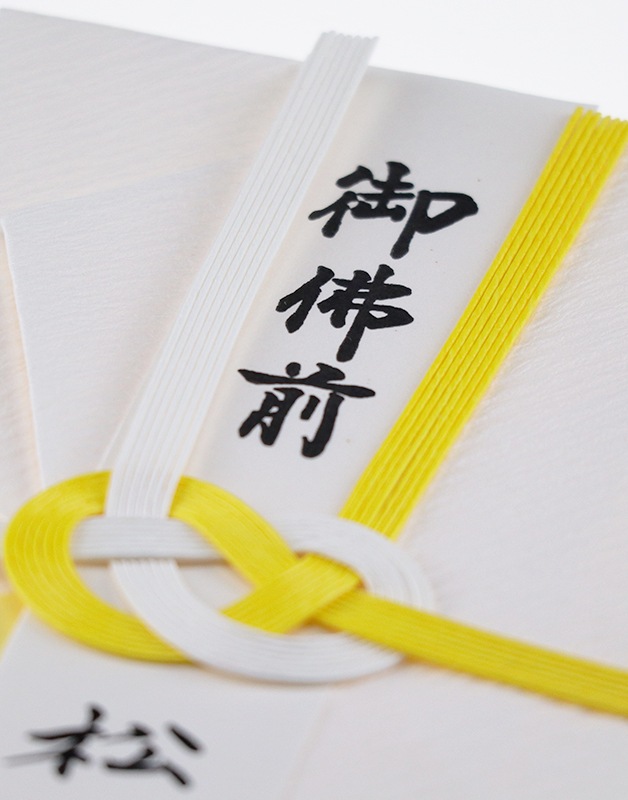 御佛前
松